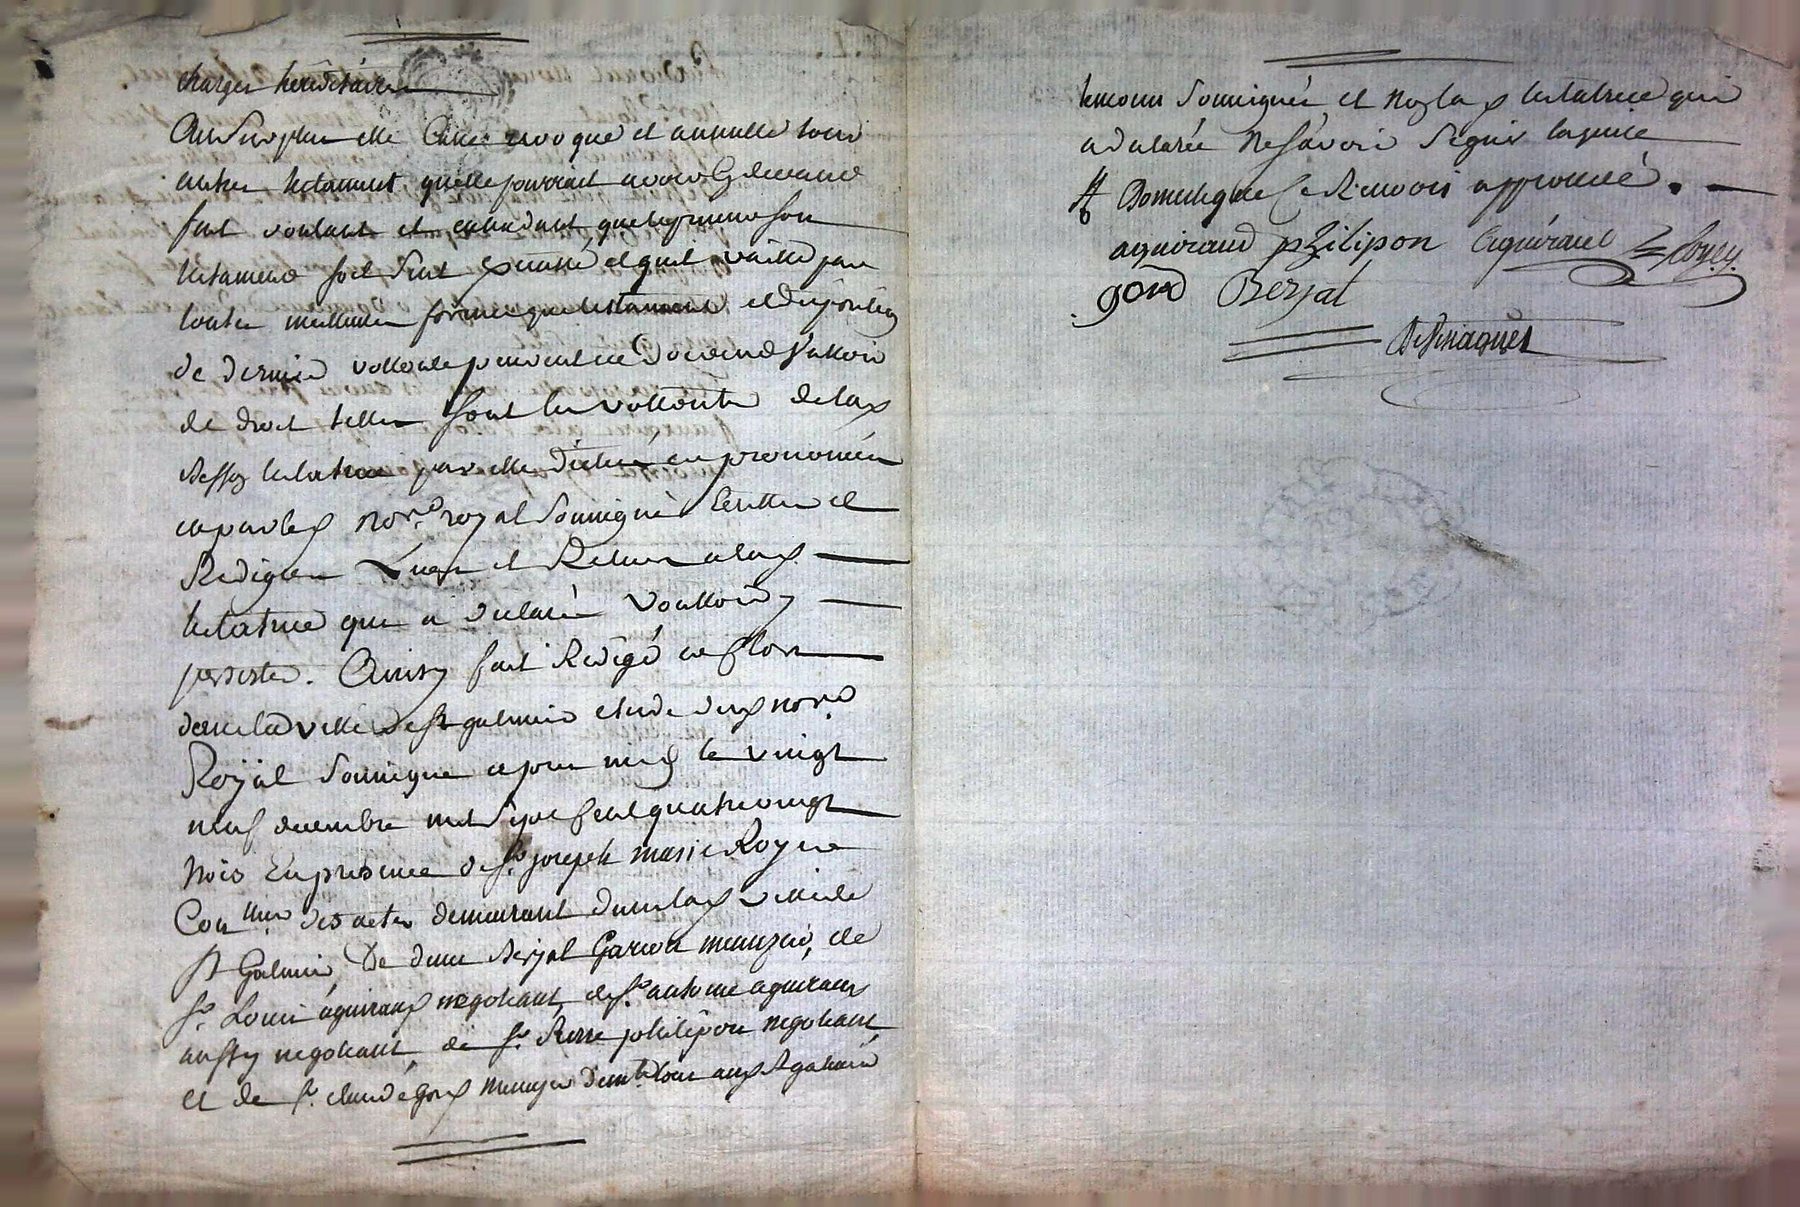 charges hereditaires
Au surplus elle Casse revoque et annulle tous
autres testaments quelle pourrait avoir cy devant
fait voulant et entendant que le present son
testament soit seul executé et quil vaille par
toutes meilleures formes que testament et disposition
de derniere vollonte peuvent et doivent valloir
de droit telles sont les vollontes de lad
testatrice par elle dictées en prononcées
au not.re royal soussigné Ecrittes et
Redigées Lues et Relues alad
testatrice qui a declaré voulloir y
persister. Ainsy fait Redigé et Clos
dans la ville de st galmier etude dud not.re
Royal soussigné apres midy le vingt
neuf decembre mil sept cent quatrevingt
trois En presence de sr. joseph marie Royer
Con.lleur des actes demeurant dans lad ville de
St Galmier, De Berjat Garcon menuzier, de
sr. Louis aguiraud negotiant, de sr. antoine aguiraud
aussy negotiant, de sr. Pierre philipon negotiant
et de sr. claude gord menuzier dem.t tous aud St galmier
temoins soussignés et non lad testatrice qui
a declarée ne savoir signer lequise
Domestique Ce Renvois approuvé.
aguiraud philipon aguiraud Royer
gord Berjat